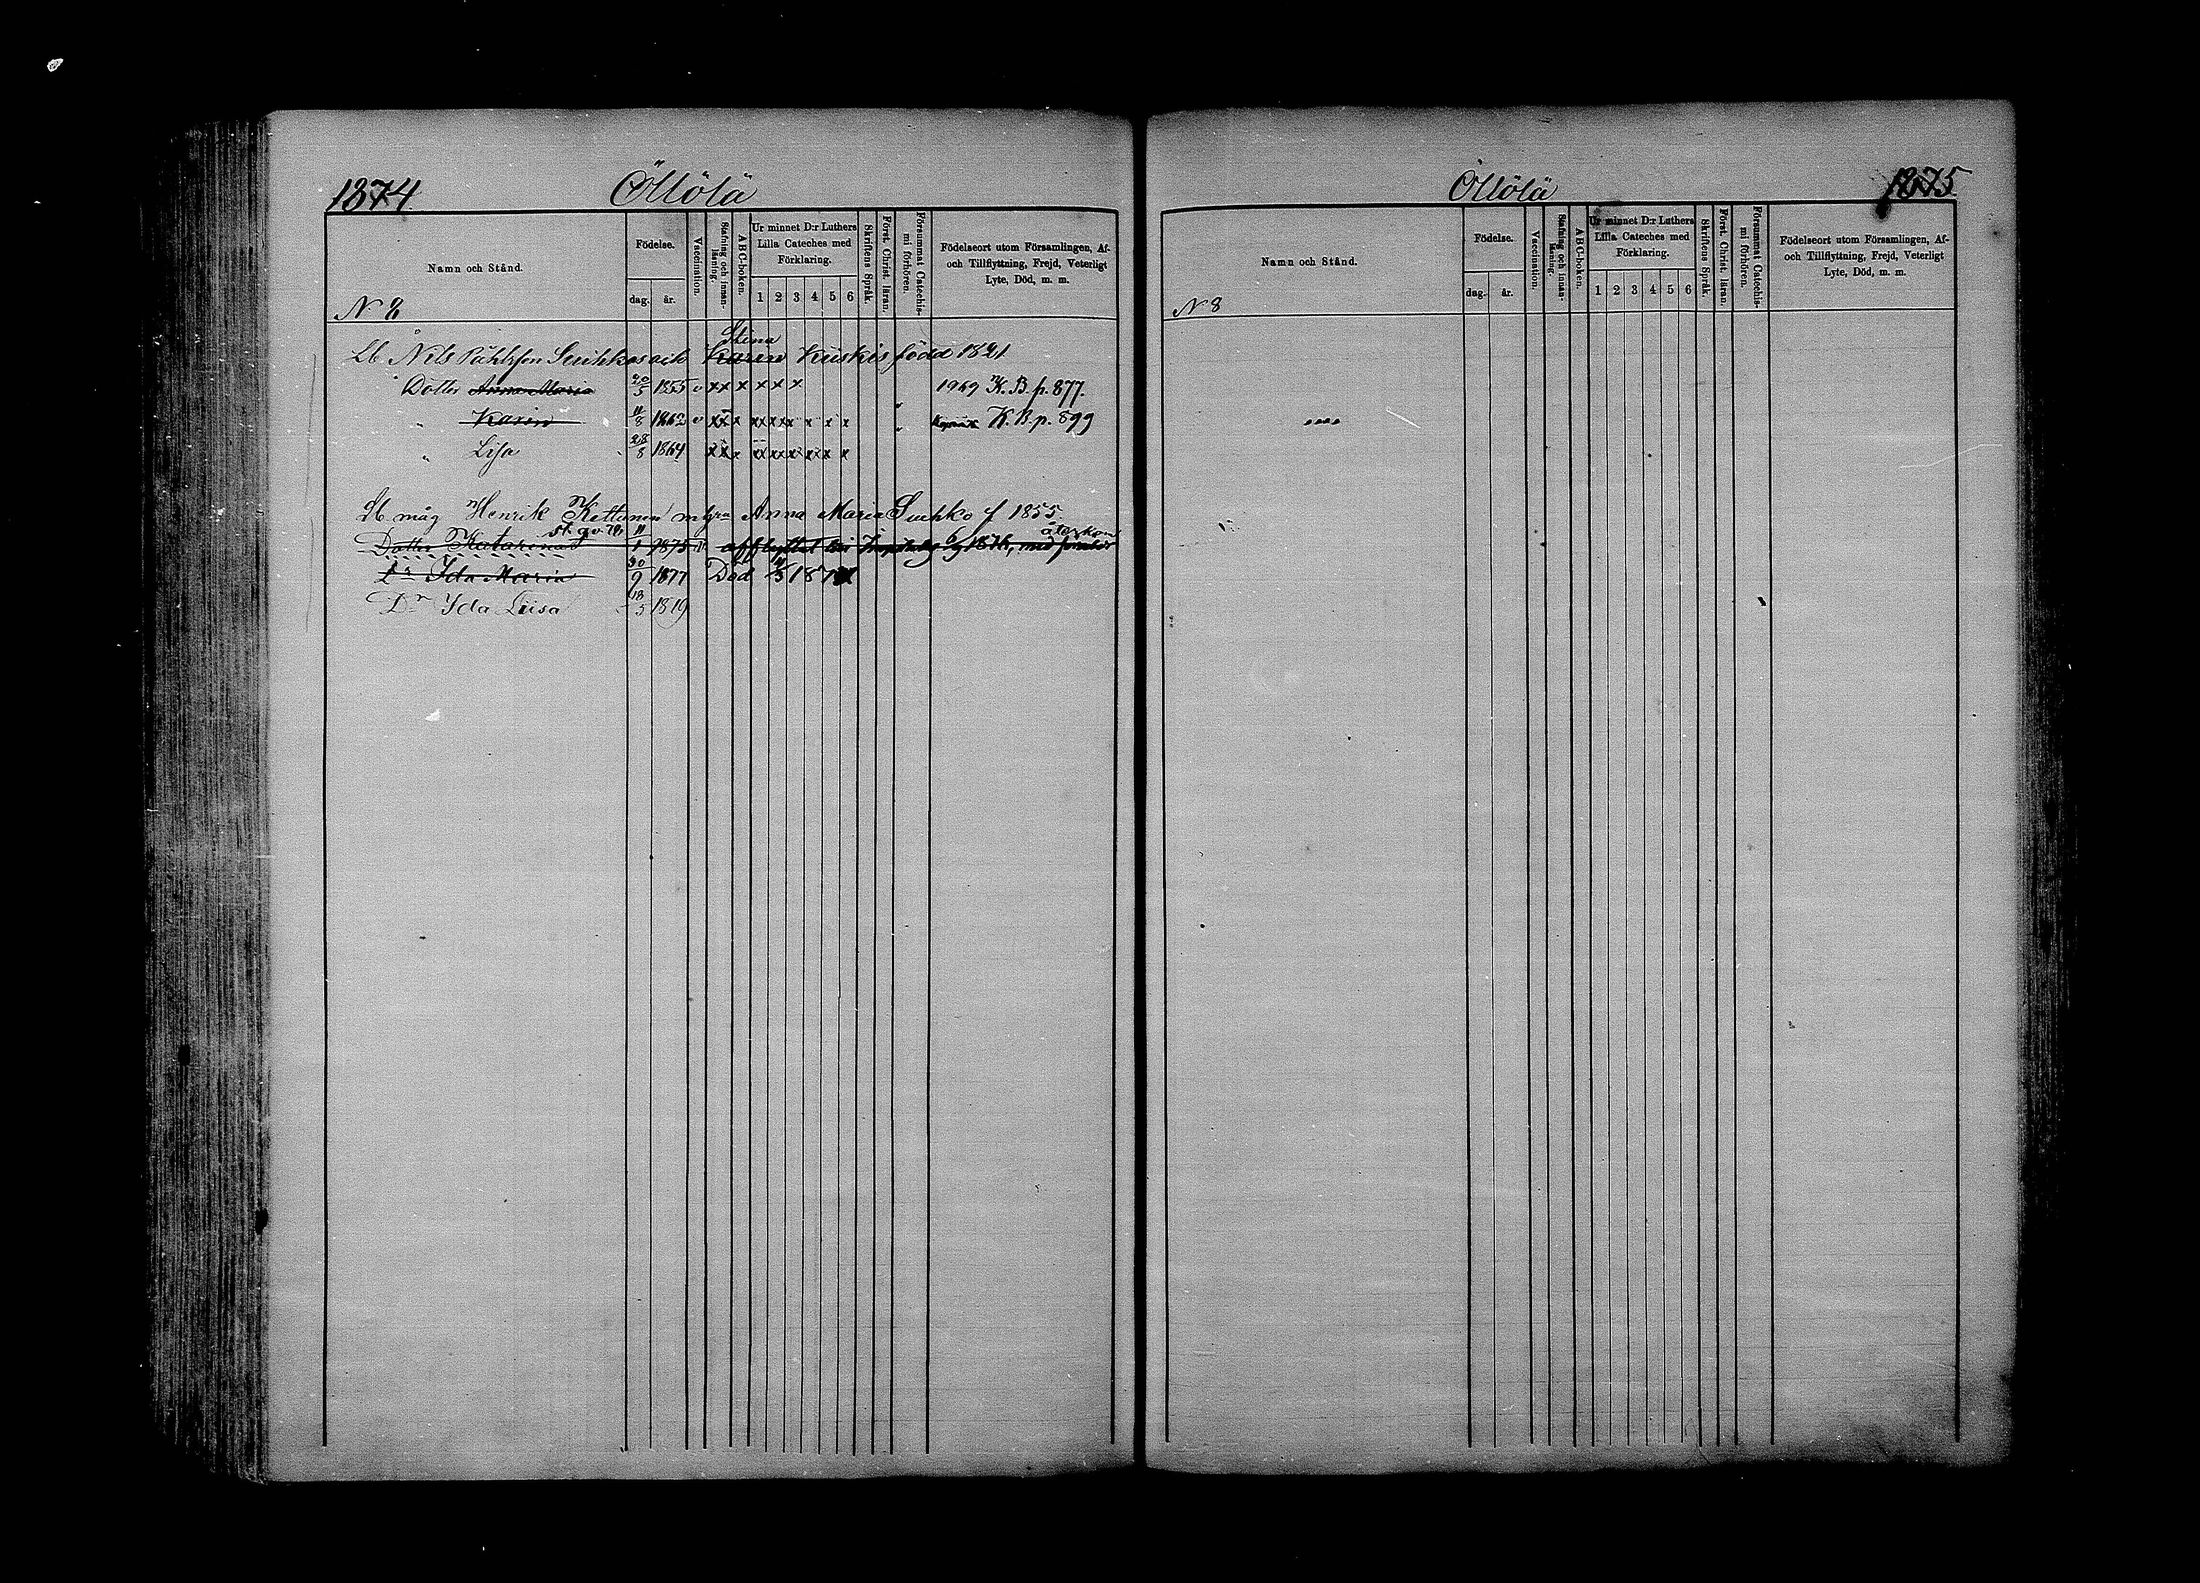 1874 Öllölä
Namn och Stånd.
Födelse.
dag. år.
Vaccination.
Stafning och innan-läsning.
ABC-boken.
Ur minnet D:r Luthers Lilla Cateches med Förklaring.
1 2 3 4 5 6
Skriftens Språk.
Först. Christ. läran.
Försummat Catechis-mi förhören.
Födelseort utom Församlingen, Af-
och Tillflyttning, Frejd, Veterligt
Lyte, Död, m. m.
N 8
Stina
Lb Nils Påhlsson Suihko Karin Kuskis född 1821
Dotter Anna Maria 20/5 1855 v xx x x x x 1969 K. B. p. 877.
" Karin 11/8 1862 v xxx xxxxx x x x " K. B. p. 899
" Lisa 28/8 1864 xxx xxxxxxx x
Lb måg Henrik Kettunen m hru Anna Maria Suihko f 1855
återkom
Dotter Katarina 11/1 1875 afflyttat till 1878, med
Dr Ida Maria 30/9 1877 Död
Dr Ida Liisa 18/5 1819
1875 Öllölä
Namn och Stånd.
Födelse.
dag. år.
Vaccination.
Stafning och innan-läsning.
ABC-boken.
Ur minnet D:r Luthers Lilla Cateches med Förklaring.
1 2 3 4 5 6
Skriftens Språk.
Först. Christ. läran.
Försummat Catechis-mi förhören.
Födelseort utom Församlingen, Af-
och Tillflyttning, Frejd, Veterligt
Lyte, Död, m. m.
N 8